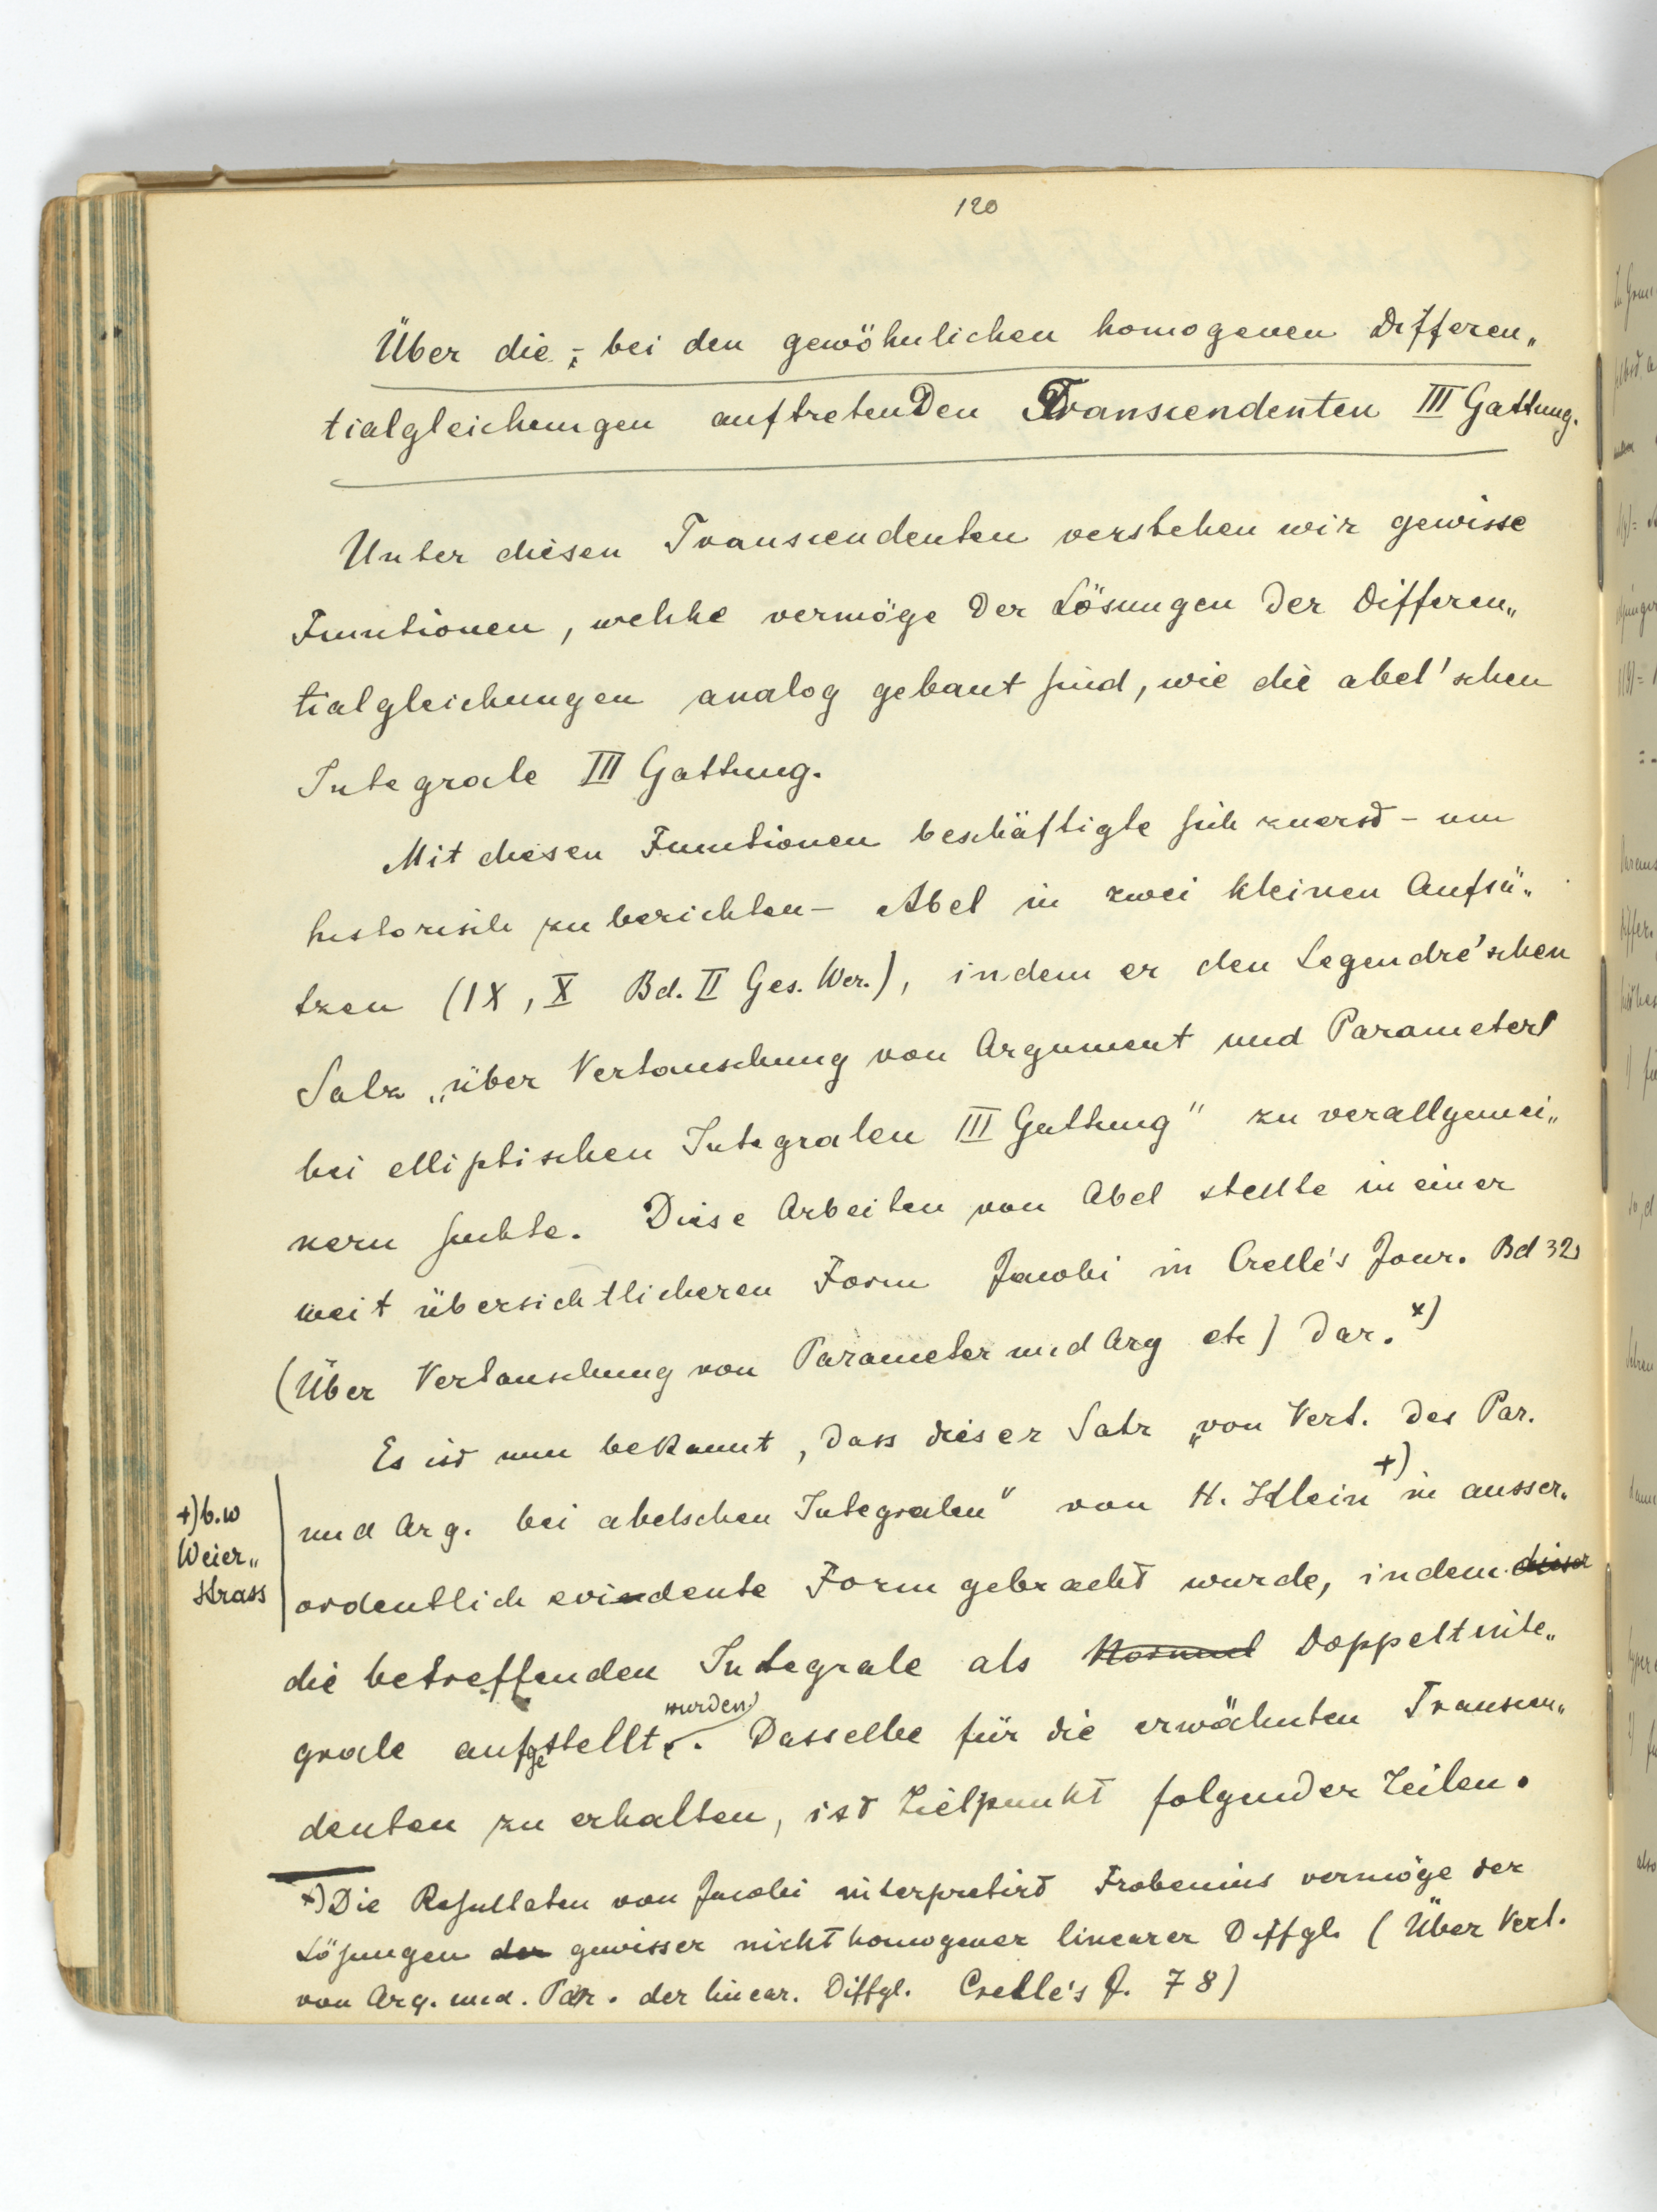 120
Über die, bei den gewöhnlichen homogenen Differen„
tialgleichungen auftretenden Transcendenten III Gattung.
Unter diesen Transcendenten verstehen wir gewisse
Functionen, welche vermöge der Lösungen der Differen„
tialgleichungen analog gebaut sind, wie die abel'schen
Integrale III Gattung.
Mit diesen Functionen beschäftigte sich zuerst – um
historisch zu berichten – Abel in zwei kleinen Aufsä„
tzen (IX, X Bd. II Ges. Wer.), indem er den Legendré'schen
Satz „über Vertauschung von Argument und Parameter
bei elliptischen Integralen III Gattung" zu verallgemei„
nern suchte. Diese Arbeiten von Abel stellte in einer
weit übersichtlicheren Form Jacobi in Crelle's Jour. Bd 32
(Über Vertauschung von Parameter und Arg etc) dar. x)
Es ist nun bekannt, dass dieser Satz „von Vert. des Par.
und Arg. bei abelschen Integralen" von H. Klein +) in ausser„
+) b.w
Weier„
strass
ordentlich evidente Form gebracht wurde, indem dieser
die betreffenden Integrale als Normal Doppeltinte„
grale aufgestellt wurden. Dasselbe für die erwähnten Transcen„
denten zu erhalten, ist Zielpunkt folgender Zeilen.
x) Die Resultaten von Jacobi interpretirt Frobenius vermöge der
Lösungen der gewisser nicht homogener linearer Diffgl. (Über Vert.
von Arg. und. Par. der linear. Diffgl. Crelle's J. 78)